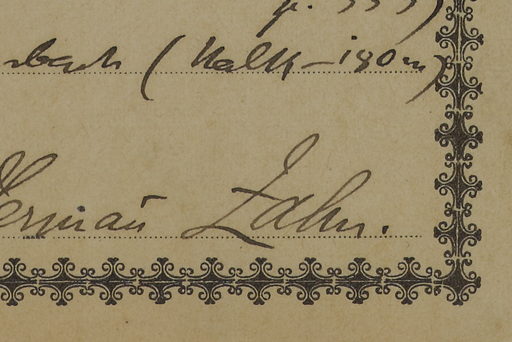 p. 333)
bach (Kalk – 180 m)
Herman Zahn.